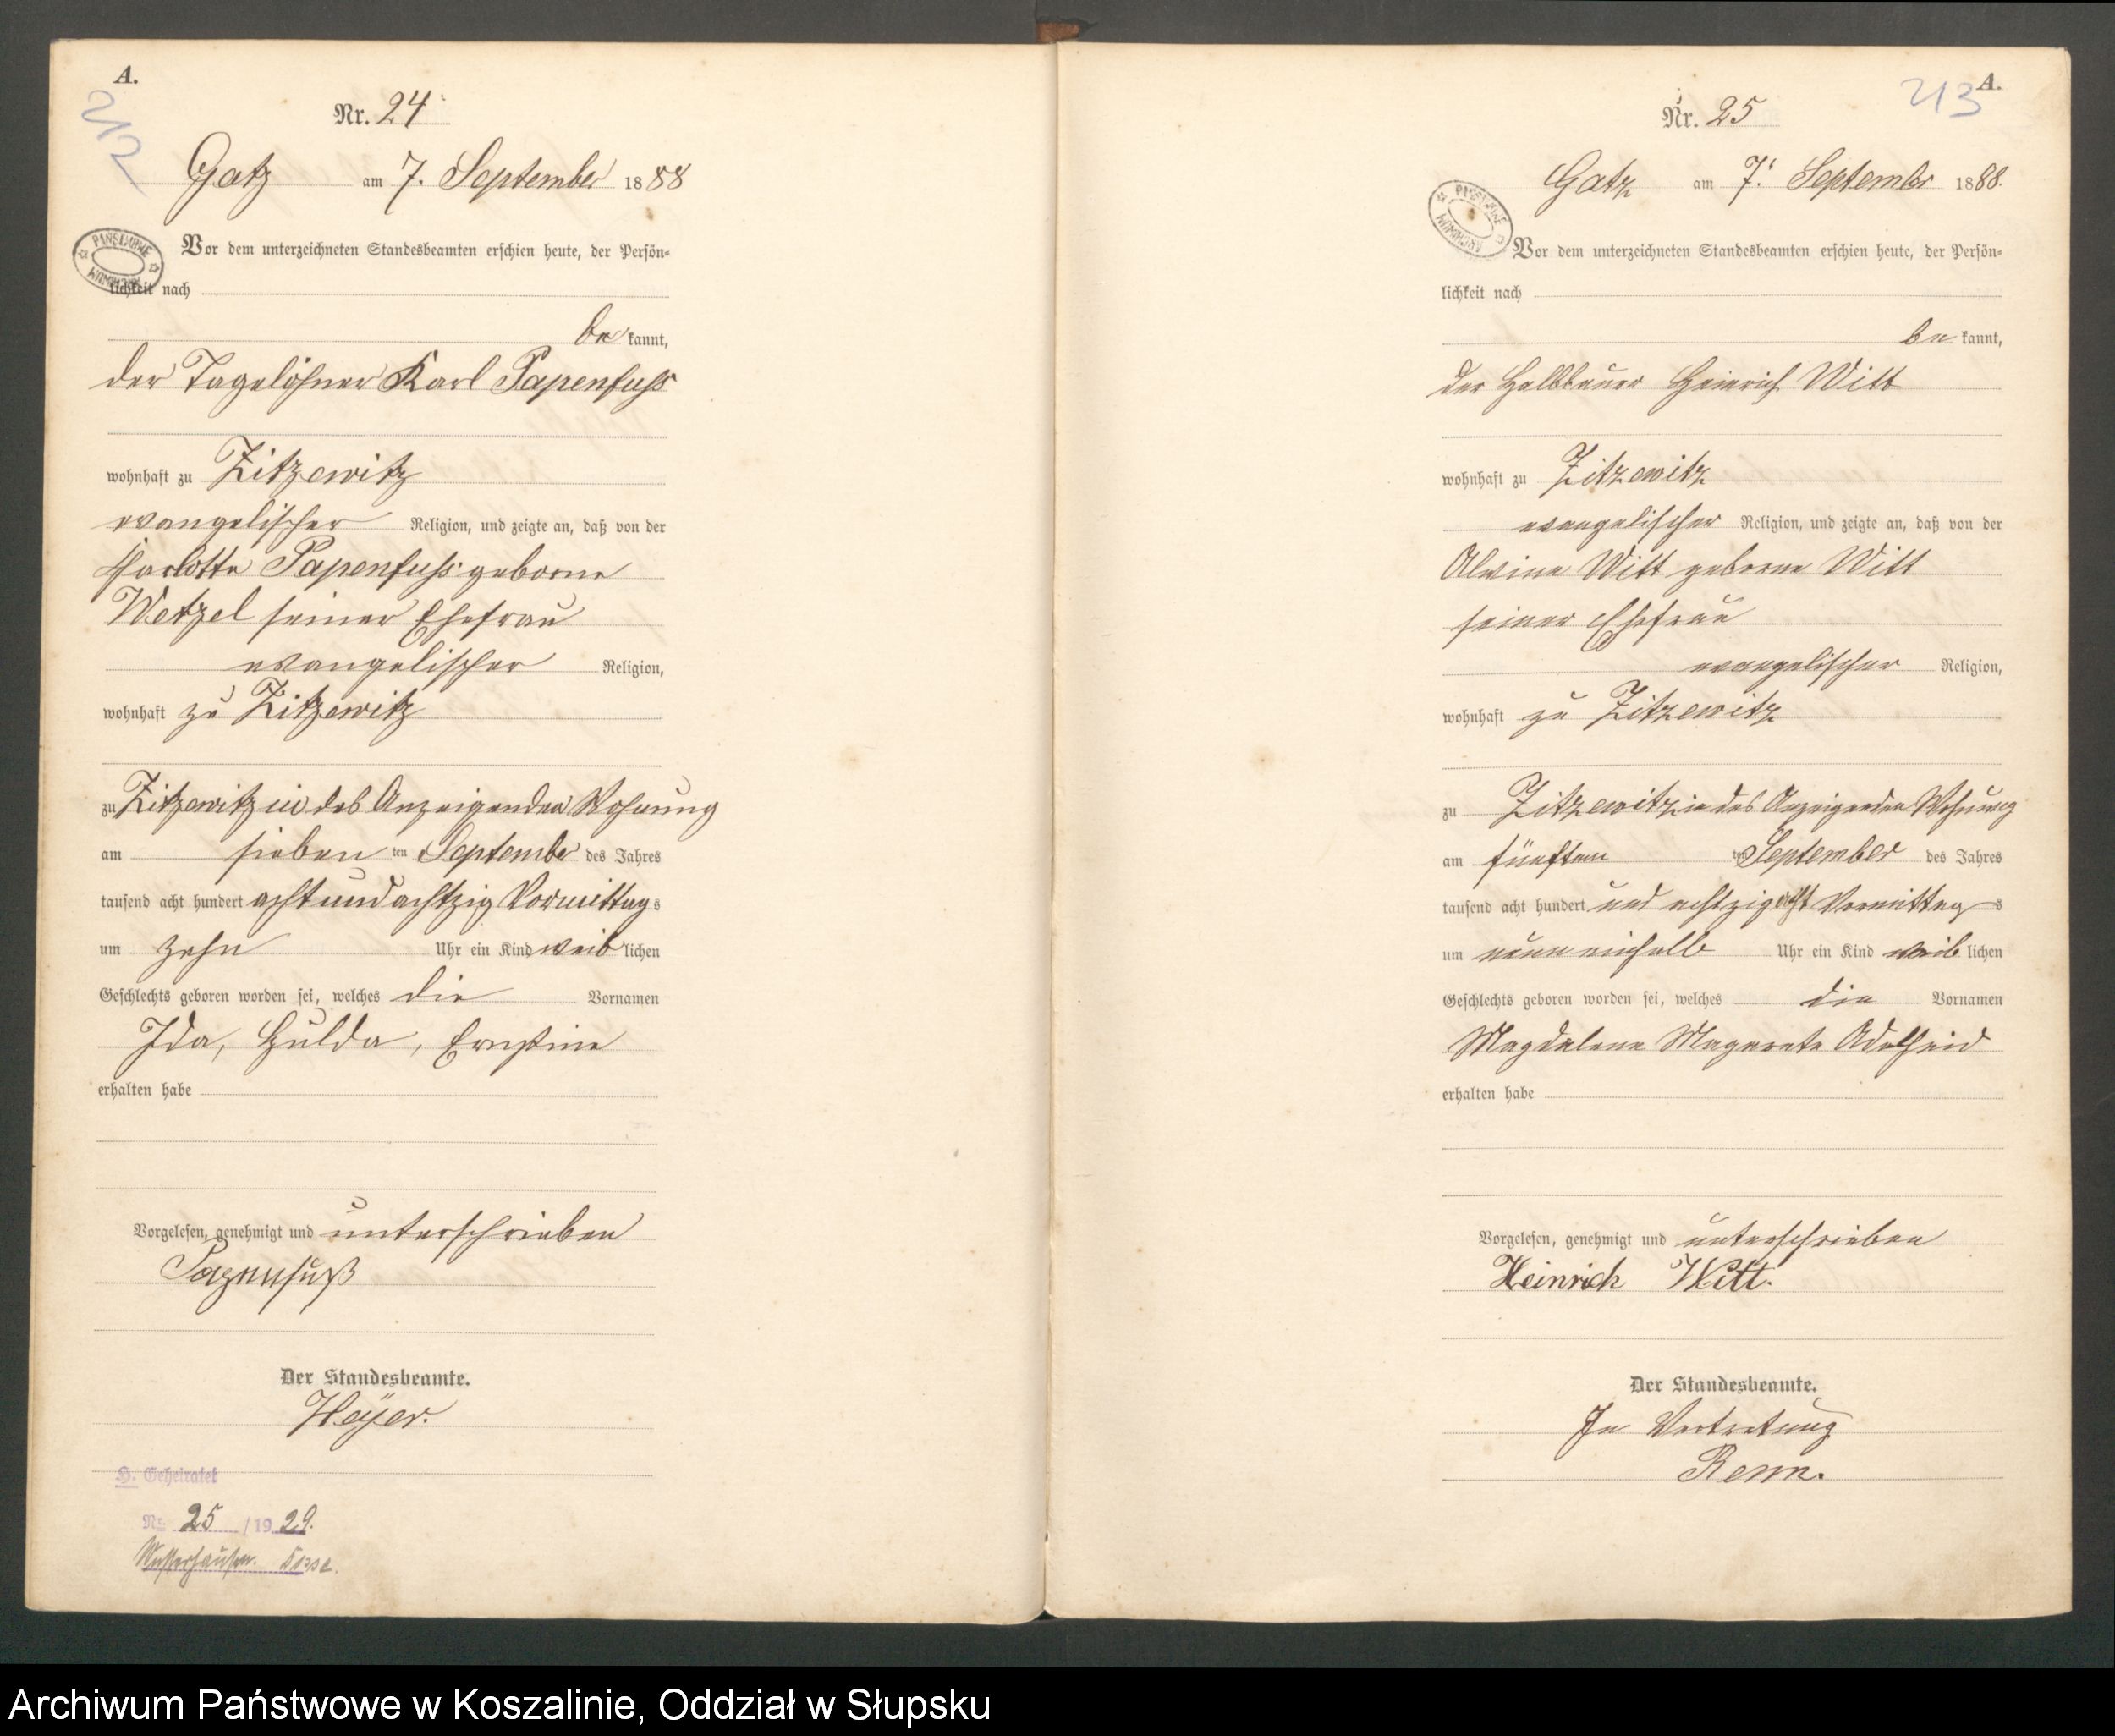 A.
212
Nr. 24
Gatz am 7. September 1888
PAŃSTWOWE ARCHIWUM
Vor dem unterzeichneten Standesbeamten erschien heute, der Persön-
lichkeit nach
be kannt,
der Tagelöhner Karl Papenfuss
wohnhaft zu Zitzewitz
evangelischer Religion, und zeigte an, daß von der
Charlotte Papenfuss geborne
Wetzel seiner Ehefrau
evangelischer Religion,
wohnhaft zu Zitzewitz
zu Zitzewitz in des Anzeigenden Wohnung
am sieben ten September des Jahres
tausend acht hundert achtundachtzig Vormittags
um zehn Uhr ein Kind weiblichen
Geschlechts geboren worden sei, welches die Vornamen
Ida, Hulda, Ernstine
erhalten habe
Vorgelesen, genehmigt und unterschrieben
Papenfuß
Der Standesbeamte.
Heyer.
H. Geheiratet
Nr. 25 / 1929.
Wusterhausen. Dosse.
A.
213
Nr. 25
Gatz am 7. September 1888.
PAŃSTWOWE ARCHIWUM
Vor dem unterzeichneten Standesbeamten erschien heute, der Persön-
lichkeit nach
be kannt,
der Halbbauer Heinrich Witt
wohnhaft zu Zitzewitz
evangelischer Religion, und zeigte an, daß von der
Alwine Witt geborne Witt
seiner Ehefrau
evangelischer Religion,
wohnhaft zu Zitzewitz
zu Zitzewitz in des Anzeigenden Wohnung
am fünften ten September des Jahres
tausend acht hundert und achtzig acht Vormittags
um neun einhalb Uhr ein Kind weiblichen
Geschlechts geboren worden sei, welches die Vornamen
Magdalene Magarete Adelheid
erhalten habe
Vorgelesen, genehmigt und unterschrieben
Heinrich Witt.
Der Standesbeamte.
In Vertretung
Renn.
Archiwum Państwowe w Koszalinie, Oddział w Słupsku